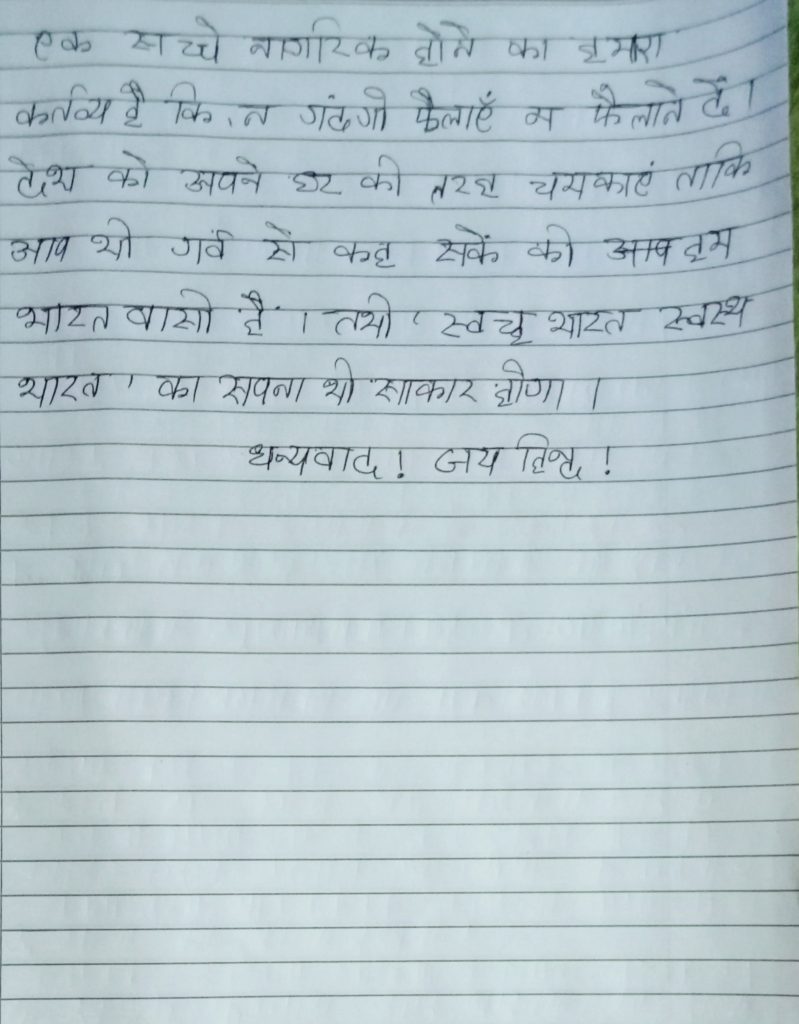 एक सच्चे नागरिक होने का हमारा
कर्तव्य है कि, न गंदगी फैलाएँ न फैलाने दें।
देश को अपने घर की तरह चमकाएं ताकि
आप भी गर्व से कह सकें की आप हम
भारत वासी है । तभी 'स्वच्छ भारत स्वस्थ
भारत' का सपना भी साकार होगा ।
धन्यवाद! जय हिन्द !